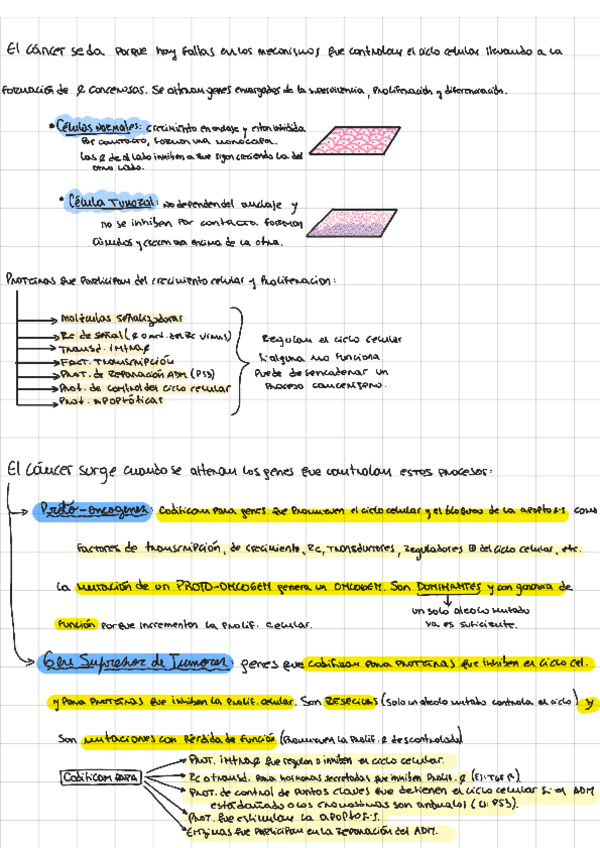 El cáncer se da porque hay fallas en los mecanismos que controlan el ciclo celular llevando a la
formación de cancerosas. Se alteran genes encargados de la supervivencia, proliferación y diferenciación.
• Células normales: crecimiento en anclaje y están inhibida
por contacto, forman una monocapa.
Las de al lado inhiben a que sigan creciendo la del
otro lado.
• Célula Tumoral: no dependen del anclaje y
no se inhiben por contacto. Forman
cúmulos y crecen una encima de la otra.
Proteínas que participan del crecimiento celular y proliferación:
moléculas señalizadoras
Rc de señal
Transd. intra
Fact. Transcripción
Prot. de reparación ADN (P53)
Prot. de control del ciclo celular
Prot. apoptóticas
Regulan el ciclo celular
si alguna no funciona
puede desencadenar un
proceso cancerígeno.
El cáncer surge cuando se alteran los genes que controlan estos procesos:
Proto-oncogenes: codifican para genes que promueven el ciclo celular y el bloqueo de la apoptosis como
factores de transcripción, de crecimiento, Rc, transductores, reguladores ⊕ del ciclo celular, etc.
La mutación de un PROTO-ONCOGEN genera un ONCOGEN. Son DOMINANTES y con ganancia de
función porque incrementan la prolif. celular.
un solo alelo mutado
ya es suficiente.
Gen Supresor de Tumores: genes que codifican para proteínas que inhiben el ciclo cel.
y para proteínas que inhiben la prolif. celular. Son RESECIVOS (solo un alelo mutado controla el ciclo) y
son mutaciones con pérdida de función (promueven la prolif. descontrolada)
Codifican PARA
Prot. intra que regulan o inhiben el ciclo celular.
Rc o transd. para hormonas secretadas que inhiben prolif.
Prot. de control de puntos claves que detienen el ciclo celular si el ADN
está dañado o los cromosomas son anormales (P53).
Prot. que estimulan la apoptosis.
Enzimas que participan en la reparación del ADN.